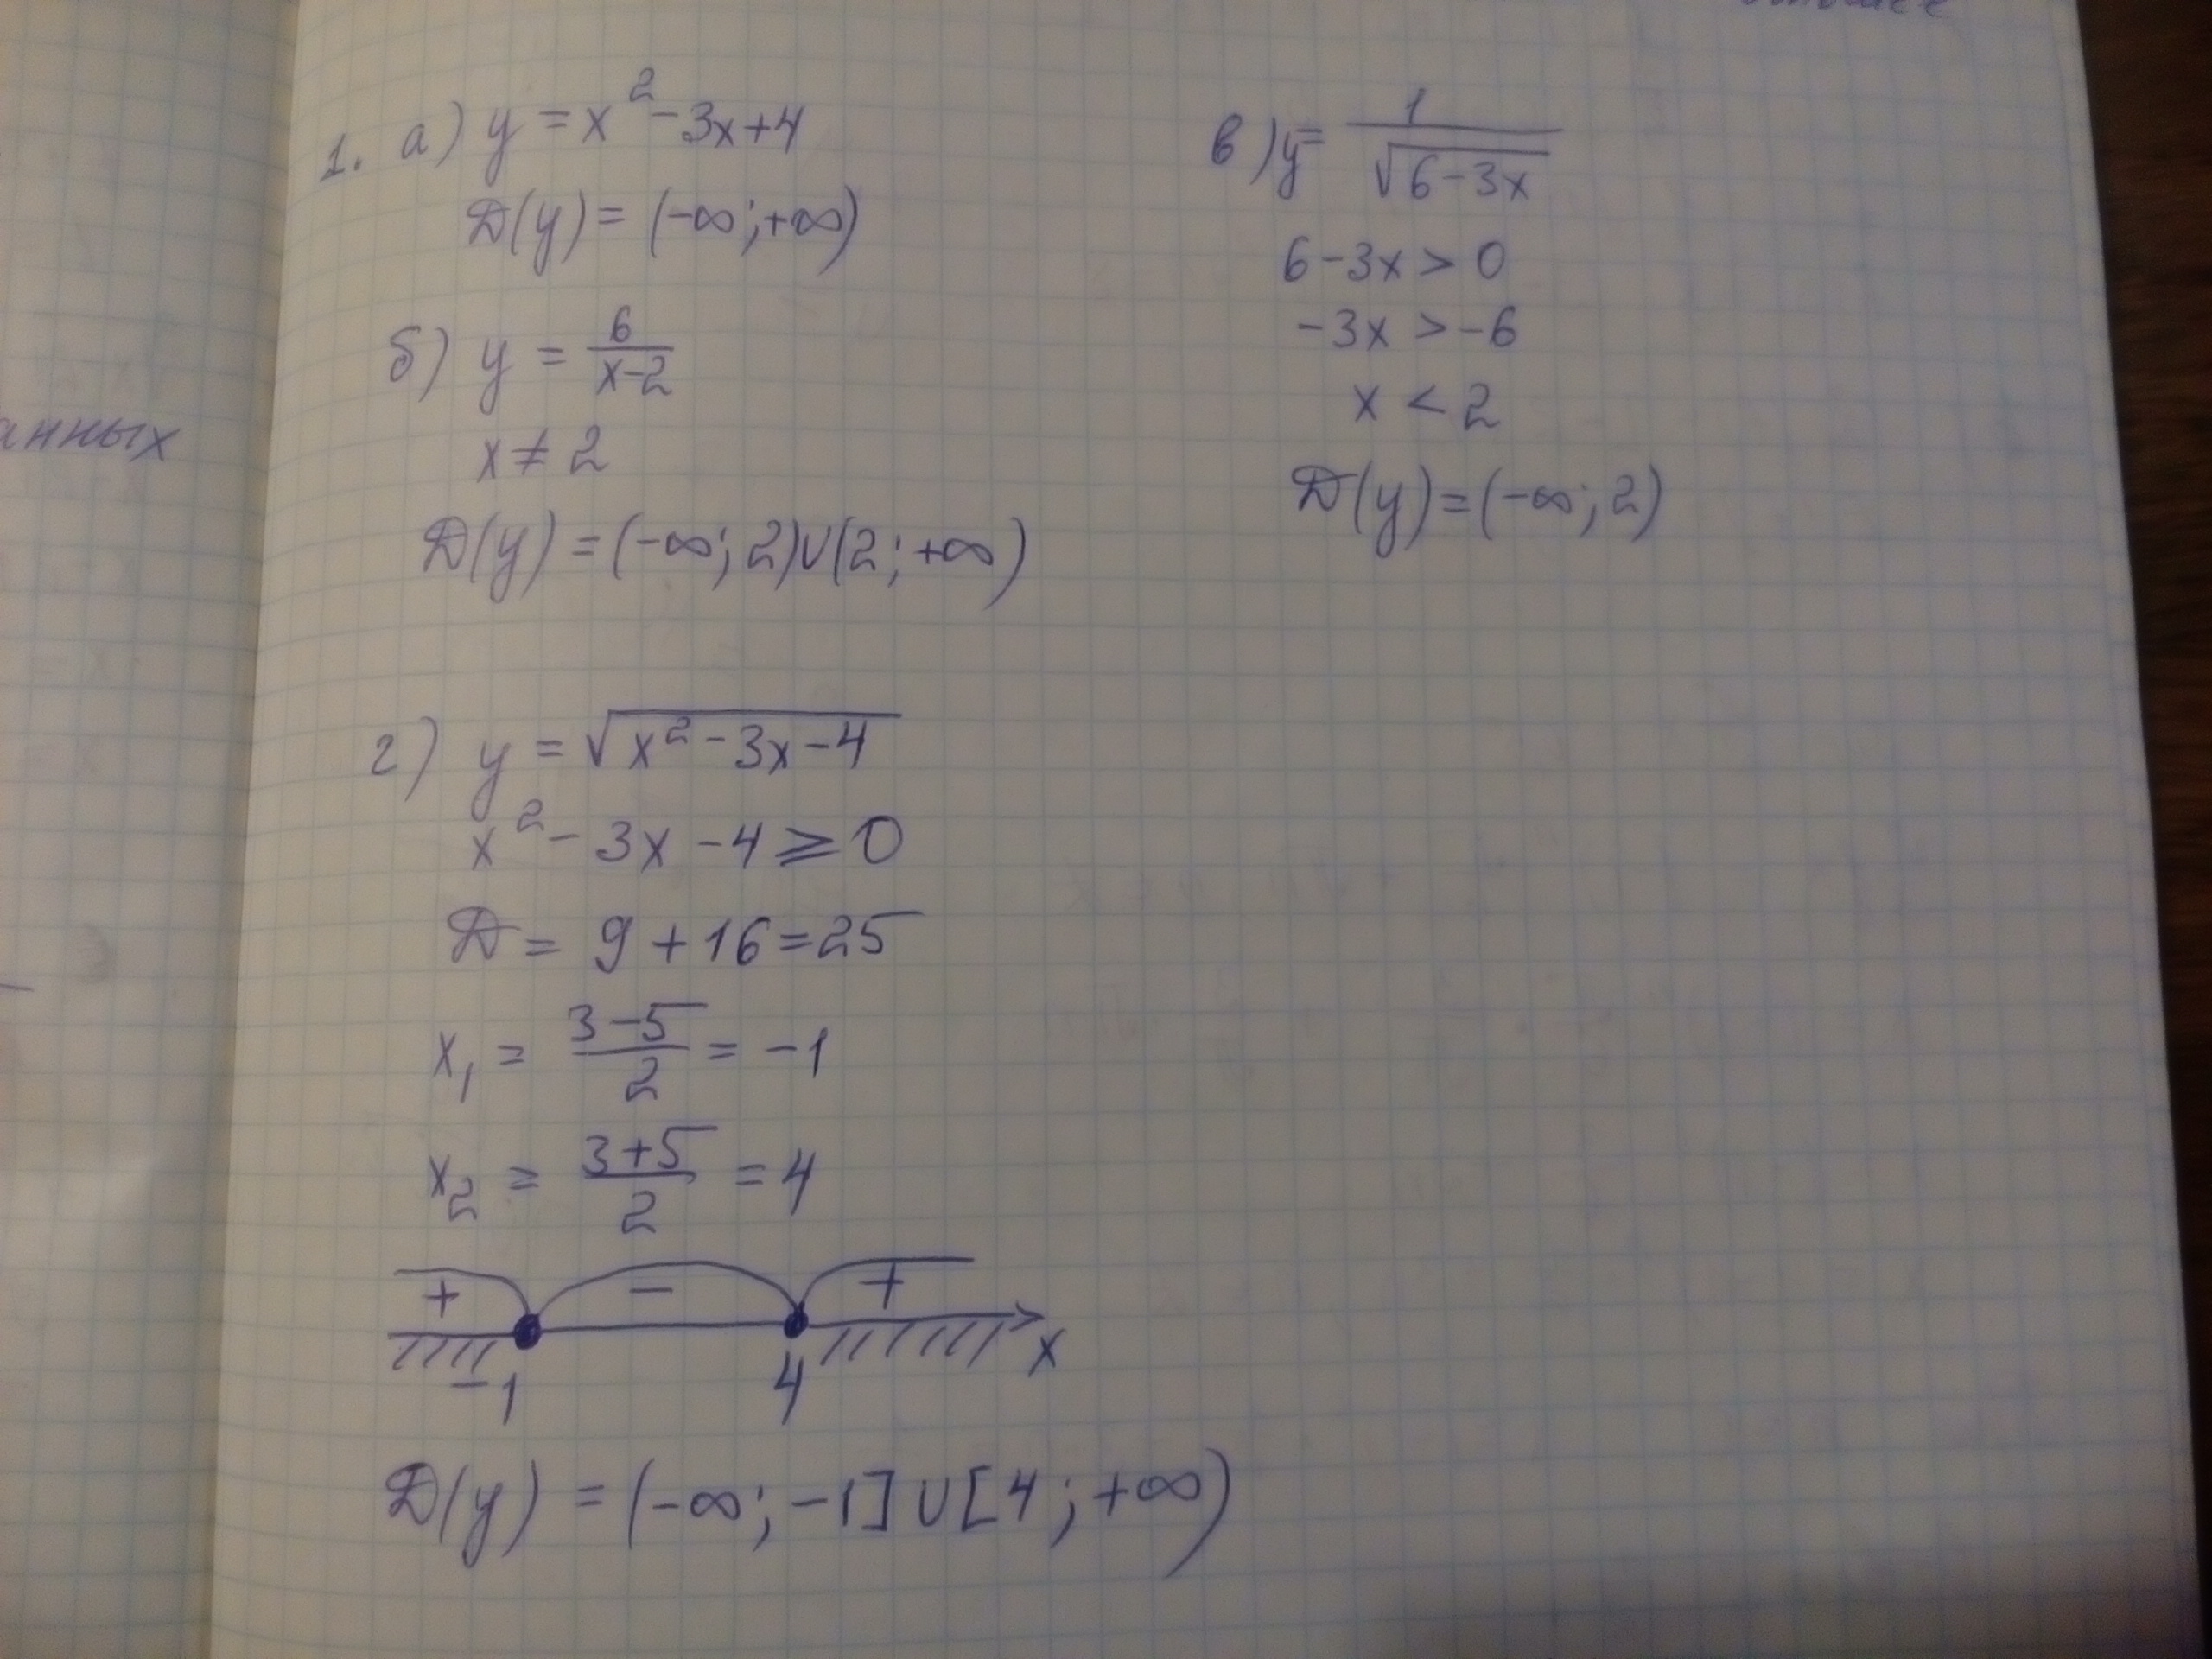 1. а) y = x² - 3x + 4
D(y) = (-∞; +∞)
б) y = 6/(x-2)
x ≠ 2
D(y) = (-∞; 2) ∪ (2; +∞)
в) y = 1/√(6-3x)
6 - 3x > 0
-3x > -6
x < 2
D(y) = (-∞; 2)
г) y = √(x² - 3x - 4)
x² - 3x - 4 ⩾ 0
D = 9 + 16 = 25
x₁ = (3-5)/2 = -1
x₂ = (3+5)/2 = 4
+ - +
-1 4 x
D(y) = (-∞; -1] ∪ [4; +∞)
анных